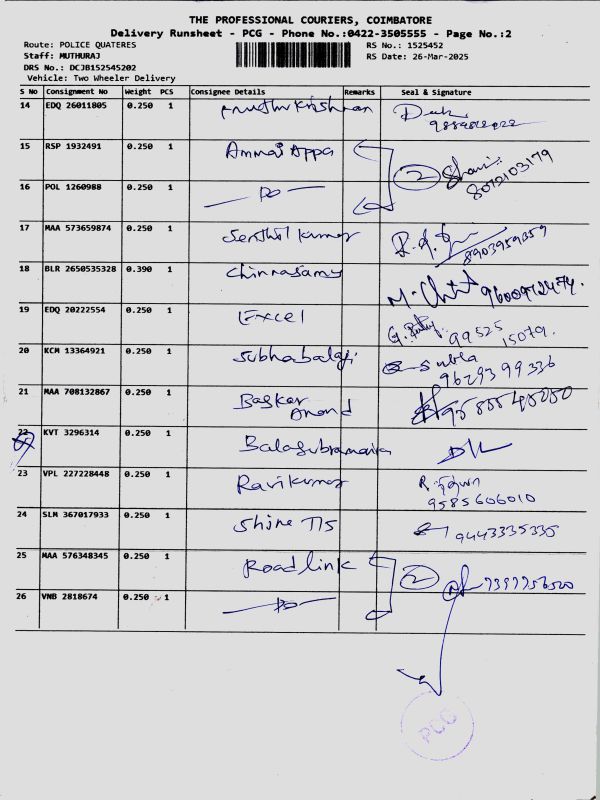 THE PROFESSIONAL COURIERS, COIMBATORE
Delivery Runsheet - PCG - Phone No.:0422-3505555 - Page No.:2
Route: POLICE QUATERES RS No.: 1525452
Staff: MUTHURAJ RS Date: 26-Mar-2025
DRS No.: DCJB152545202
Vehicle: Two Wheeler Delivery
S No Consignment No Weight PCS Consignee Details Remarks Seal & Signature
14 EDQ 26011805 0.250 1
15 RSP 1932491 0.250 1 Ammai Appa 2 8072103179
16 POL 1260988 0.250 1 Do
17 MAA 573659874 0.250 1 Senthil kumar 8903959359
18 BLR 2650535328 0.390 1 Chinnasamy
19 EDQ 20222554 0.250 1 Excel 99525 15079.
20 KCM 13364921 0.250 1 Subhabalaji Subla 9629399336
21 MAA 708132867 0.250 1 Baskar Anand
22 KVT 3296314 0.250 1 Balasubramaniya
23 VPL 227228448 0.250 1 Ravikumar 9585606010
24 SLM 367017933 0.250 1 Shine TTS 9443335335
25 MAA 576348345 0.250 1 Roadlink 2
26 VNB 2818674 0.250 1 Do
PCG